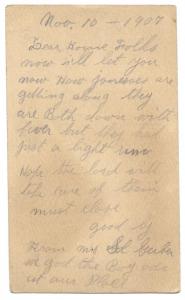 Nov. 10 - 1907
Dear Home Folks
now will let you
now How are
getting along they
are Both down with
fever but they had
just a light
Hope the lord will
take care of them
must close
good by
From
we god the Boy
at our Place